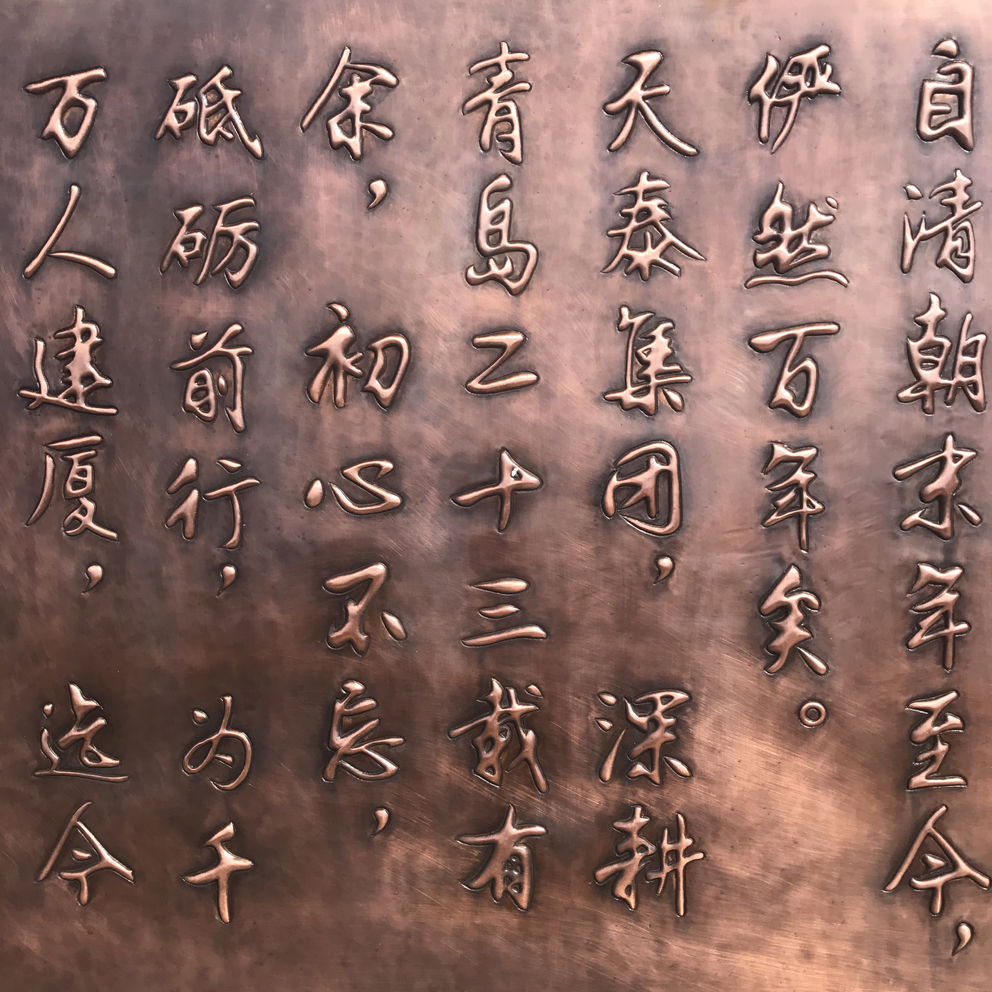 自清朝末年至今，
俨然百年矣。
天泰集团，深耕
青岛二十三载有
余，初心不忘，
砥砺前行，为千
万人建厦，迄今